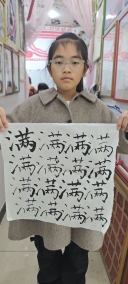 满满满满
满满满满
满满满满
满满满满